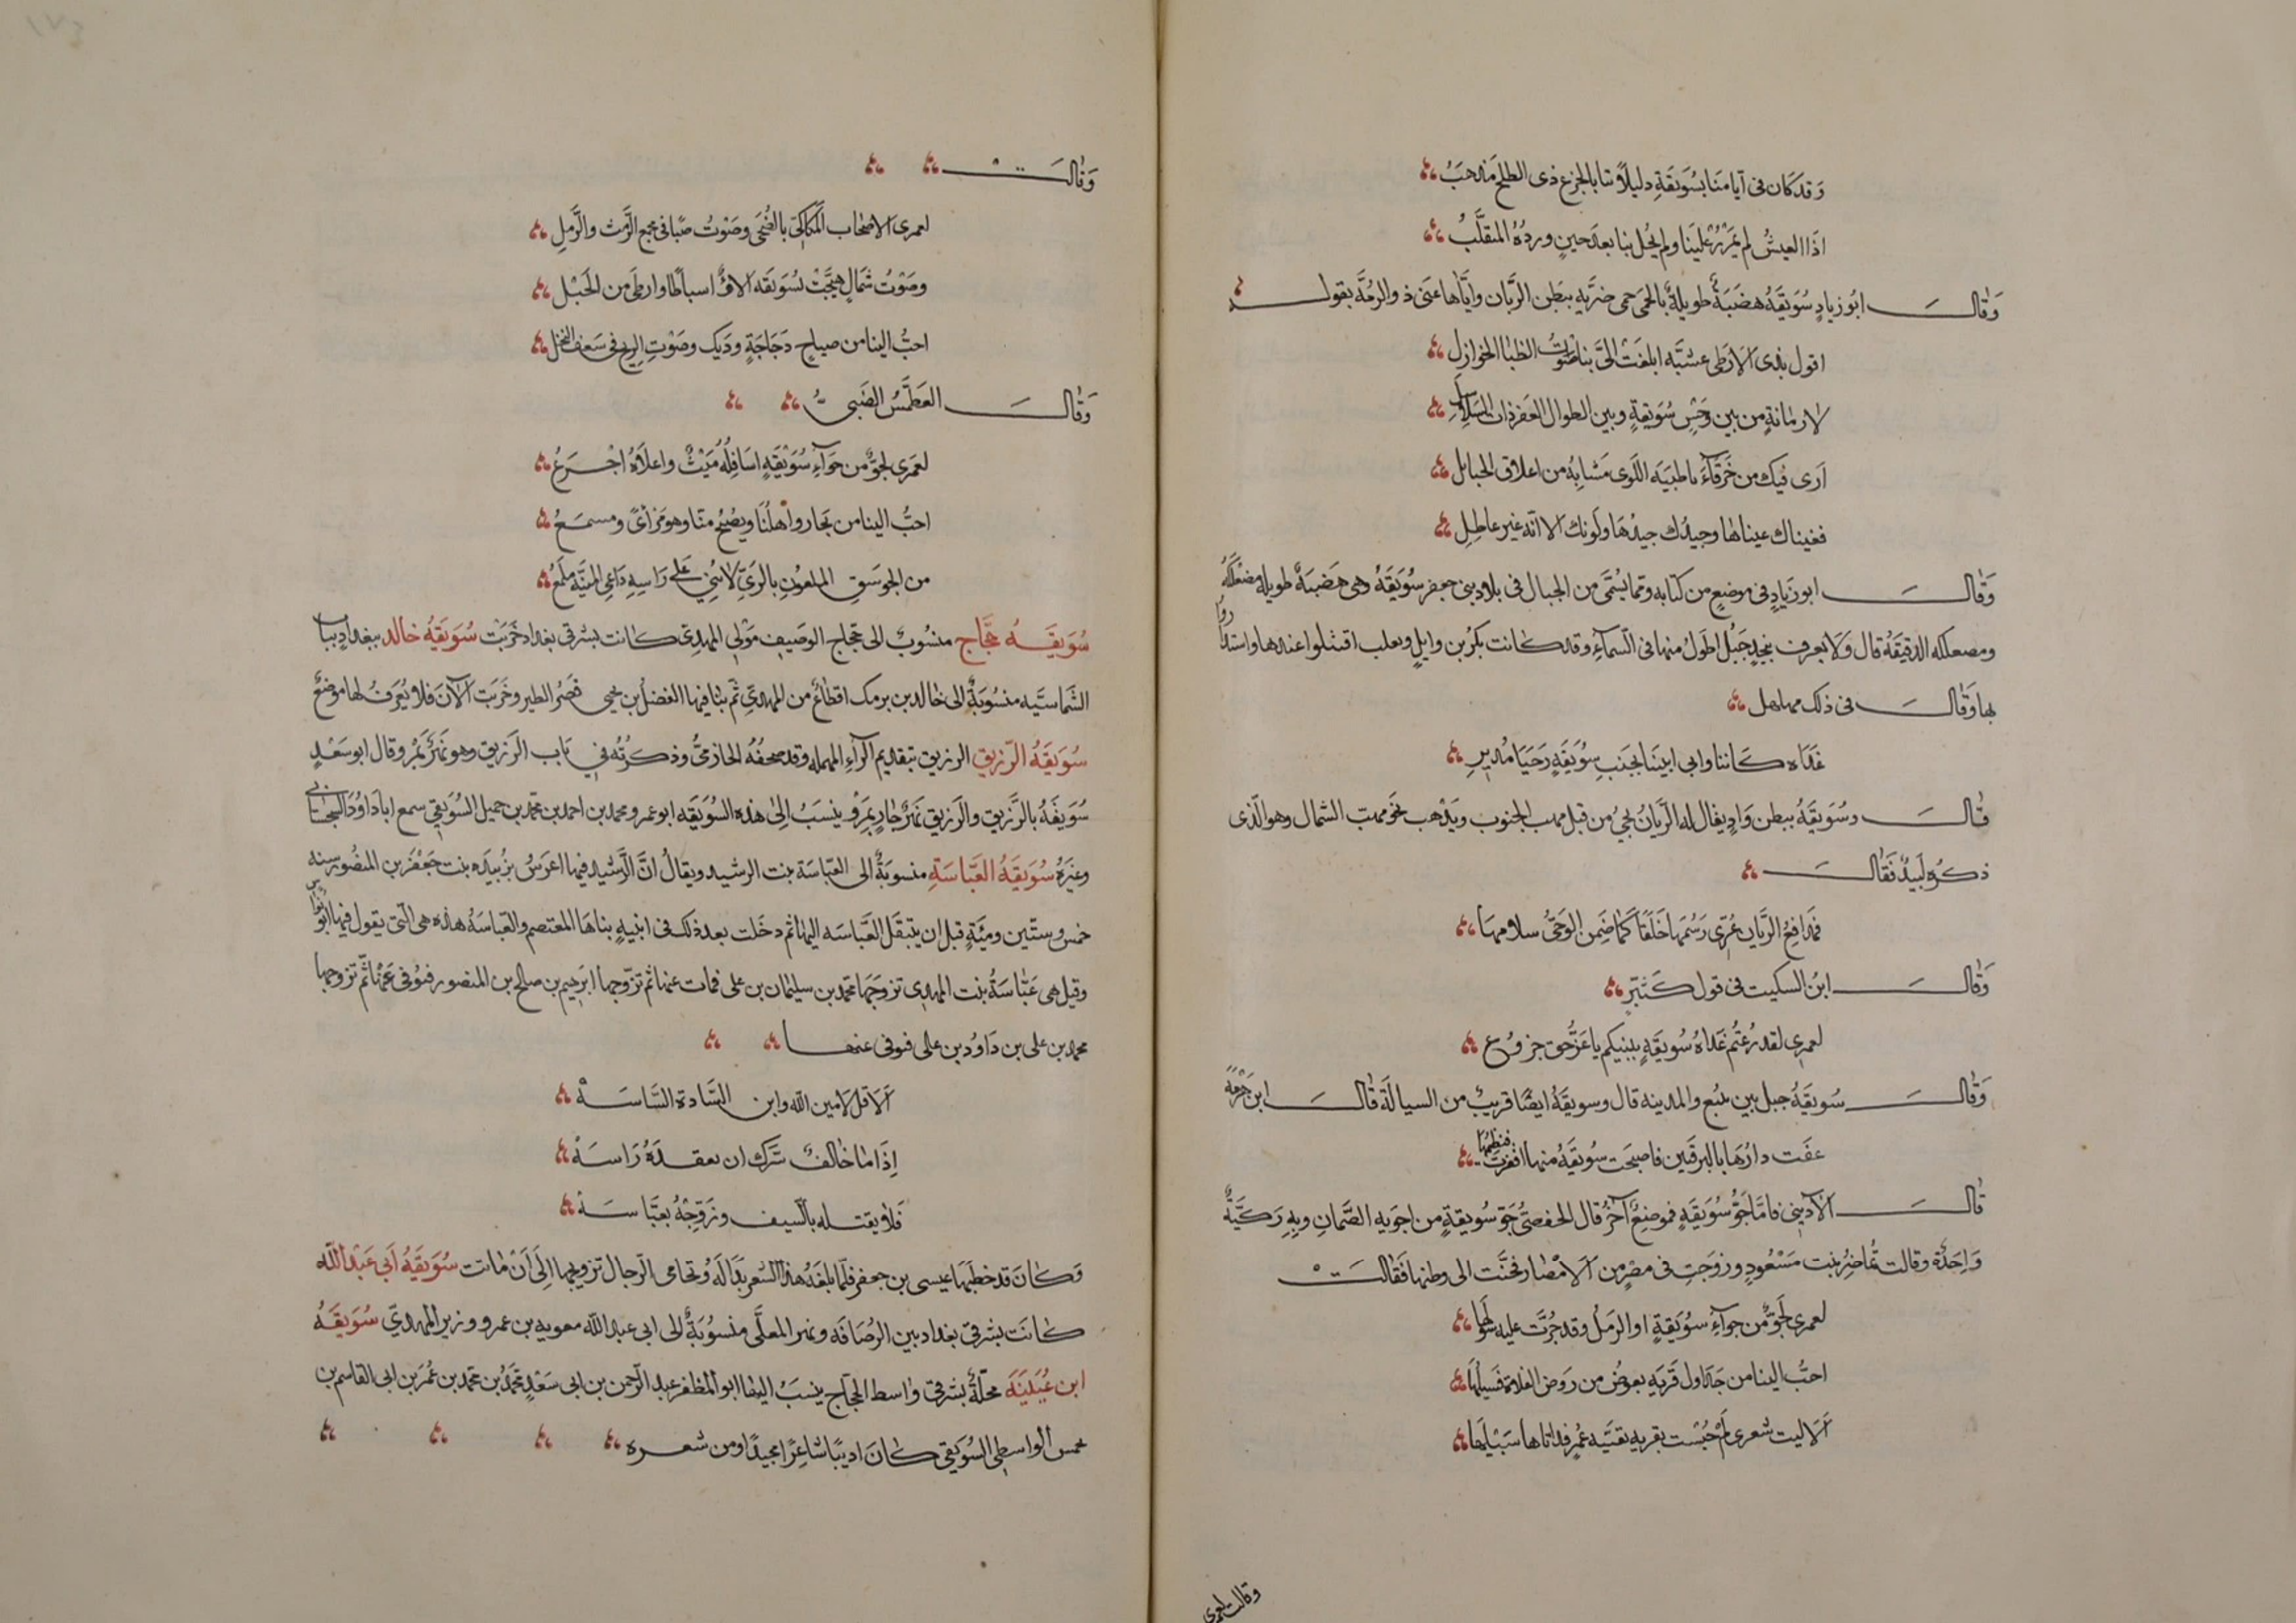 وَقد كان فى ايامنَا بسُوَيقَةِ دليلاً وتنا بالجزع ذى الطلح مَذهبُ
اذَا العيشُ لم يَمرُرْ علَينا ولم يحُل بنا بعدَ حينٍ وردُهُ المتقلَّبُ
وَقالَ ابُو زيادٍ سُوَيقَةُ هضَبَةٌ طويلةٌ بالحمى حمى ضريَّه ببَطن الريَّان وايَّاها عنَى ذو الرمَّة بقوله
اقول بذى الارطى عشيَّه ابلغَتْ الىَّ بنا صوتُ الظبا الخواذل
لادمانةٍ من بين وَحشِ سُوَيقةٍ وبين الطوال العفر ذات السلاسل
اَرى فيك من خَرقَآءَ يا ظبيَه اللوَى مَشابِهُ من اعلاق الحبايل
فعيناك عيناها وجيدُك جيدُهَا ولونك الا انه غير عاطِلِ
وَقالَ ابو زيادٍ فى موضعٍ من كتابه ومما يُسَمَّى من الجبال فى بلاد بنى جعفر سُوَيقَةُ وهى هَضبَةٌ طويله مصَعلَكَةٌ
ومصعلكه الدقيقَةُ قال وَلَا يعرف بنجدٍ جَبَلٌ اطوَلُ منها فى السمآءِ وقد كانت بكرُ بن وايلٍ وتغلب اقتتلوا عندها واستداروا
بها وَقالَ فى ذلك مهلهل
غداه كاننا وابى ابينَا بجنَبِ سوُيَقَةٍ رَحَيَا مُديرِ
قالَ وسُوَيقَةُ ببطن وَادٍ يقال له الريَّانُ يجئ من قبل مهب الجنوب ويَذهب نحو مهب الشمال وهو الّذى
ذكره لَبيدٌ فَقالَ
فمدَافعُ الريَّان عُرّى رَسمُهَا خَلَقاً كَمَا ضَمِنَ الوحىُّ سلامهَا
وَقالَ ابنُ السكيت فى قول كَثيّرٍ
لعمرى لقد رُعتُم غَدَاهُ سُويقَةٍ ببينكم يا عَزُّ حق جزوُع
وَقالَ سُوَيقَةُ جبل بين ينبع والمدينه قال وسويقَةُ ايضًا قريبٌ من السيالَة قالَ ابن هَرْمَة
عفَت دارُهَا بالبرقَين فاصبحَت سوُيقَةُ منها اقفرت فنظيمُهَا
قالَ الادَيبىُّ فامَّا جَوُّ سُوَيقَةٍ فموضِعٌ آخر قال الحفصىُّ جَوُّ سويقةٍ من اجويه الصَّمانِ وبه رَكيَّةٌ
وَاحِدَة وقالت تُماضِرُ بنت مَسْعُودٍ وزوَجَت فى مصرٍ من الامْصار فحَنَّت الى وطنها فَقالَتْ
لعمرى لَجوٌّ من جوآءِ سوُيقَةٍ او الرمل وقد جُرَّت عليه سُيُولها
احبُّ الينا من جَداول قَريَهٍ تعوضُ من رَوضِ الفلاة فَسيلُهَا
الَا ليت شعرى لا حُبِّست بقريه بقيَّه عُمرٍ قد اتاها سَبيلُهَا
وقالت لعمرى
وَقالَتْ
لعمرى لاصْحاب المَكاكىّ بالضُّحَى وصَوْتُ صَبًا فى مجمع الرّمث والرّملِ
وصَوْتُ شمالٍ هيَّجَتْ بسُوَيقَه الاءً واسباطًا وارطى من الحَبْل
احبُّ الينا من صياح دَجَاجَةٍ وديك وصَوْتِ الريح فى سَعَف النخل
وَقالَ الغطَمّشُ الضَبىُّ
لعمَرى لجوٌّ من جوَآءِ سُوَيْقَةٍ اسَافِلُهُ مَيثٌ واعلاَهُ اجْرَعُ
احبُّ الينا من تجاور اهلُنَا ويصُبحُ متّا وهو مَرْأىً ومسمَعُ
من الجوسَقِ الملعوُنِ بالرّىِّ لا يَنى عَلى رَاسِهِ دَاعى المنيَّة يلمَعُ
سُوَيقَةُ حَجَّاجٍ منسُوبٌ الى حجّاج الوصيف مَوْلى المهدى كانت بشرقى بغداد خَرِبَتْ سُوَيقَةُ خَالد ببغداد بباب
الشَمَّاسيَّه منسُوبَةٌ الى خالد بن برمك اقطاعٌ من المهدىّ ثم بنا فيها الفضلُ بن يحيى قصَر الطير وخَربَت الآنَ فلا يُعَرفُ لها موضعٌ
سُوَيقَةُ الرّزيق الرزيق بتقديم الرآءِ المهمله وقد صحفَهُ الحازمىُّ وذكرتُه فى بَاب الرّزيق وهو نَهرٌ بمَرْو وقال ابو سَعْدٍ
سُوَيقَةُ بالرَّزيق والرَّزيق نَهرٌ جارٍ بمَرْو ينسَبُ الى هذه السُوَيقَه ابو عمرو محمد بن احمد بن محمّد بن جميل السُوَيقى سمع ابا دَاوُدَ السجستانى
وغيَرهُ سُوَيقَةُ العَبّاسَة منسوبَةٌ الى العبّاسَة بنت الرشيد ويقالُ انَّ الرّشيد فيها اعرَسَ بزُبَيدَه بنت جَعْفَر بن المنصُور سنه
خمس وستّين وميَّةٍ قبل ان ينتقل العَبّاسَه اليها ثم دخَلت بعد ذلك فى ابنيه بناهَا المعتصم والعَباسَةُ هذه هى التى يقول فيها ابو نُوَاسٍ
وقيل هى عَبّاسَةُ بنت المهدى تزوجَهَا محمّد بن سليمان بن على فمات عنها ثم تزّوجها ابرَهيم بن صالح بن المنصور فتوُفى عَنْها ثم تزوجها
محمد بن على بن دَاوُد بن على فتوفى عنها
اَلَا قل لامين اللّه وابن السَّادة السَّاسَهْ
إِذَا ما خالفٌ سَرَّك ان يفقدَهُ رَاسَهْ
فَلَا يقتله بالسّيف وزَوِّجْهُ بعَبَّاسَهْ
وَكانَ قد خطَبَهَا عيسى بن جعفر فلَمَّا بلغَهُ هذا الشعر بَدَا لَهُ وتحامى الرجال تزويجها الَى اَنْ ماتت سُوَيقَةُ اَبى عَبْد اللّه
كانَت بشرقى بغداد بين الرصَافَه ونهر المعلّى منسُوبَةٌ الى ابى عبد اللّه معويه بن عمرو وزير المهدىّ سُوَيقَةُ
ابن عُيَينَةَ محلَّةٌ بشرقى واسط الحجّاج ينسَبُ اليها ابو المظفر عبد الرّحمن بن ابى سَعْدٍ محمَّدُ بن محمد بن عُمَرَ بن ابى القاسم بن
خمس الواسطى السُوَيقى كانَ اديبًا شاعرًا مجيدًا ومن شعره